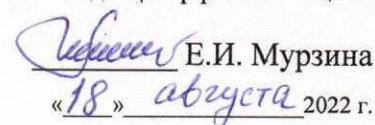 Е.И. Мурзина
«18» августа 2022 г.